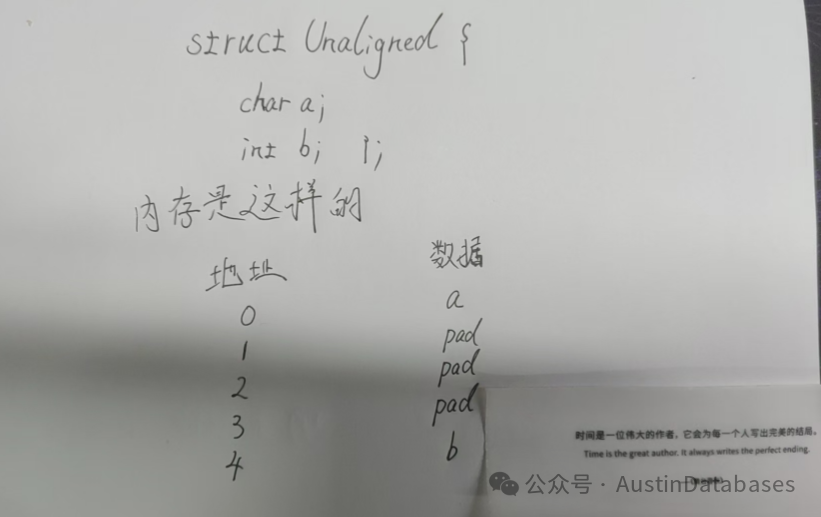 struct Unaligned {
char a;
int b; };
内存是这样的
地址 数据
0 a
1 pad
2 pad
3 pad
4 b
时间是一位伟大的作者，它会为每一个人写出完美的结局。
Time is the great author. It always writes the perfect ending.
公众号 · AustinDatabases